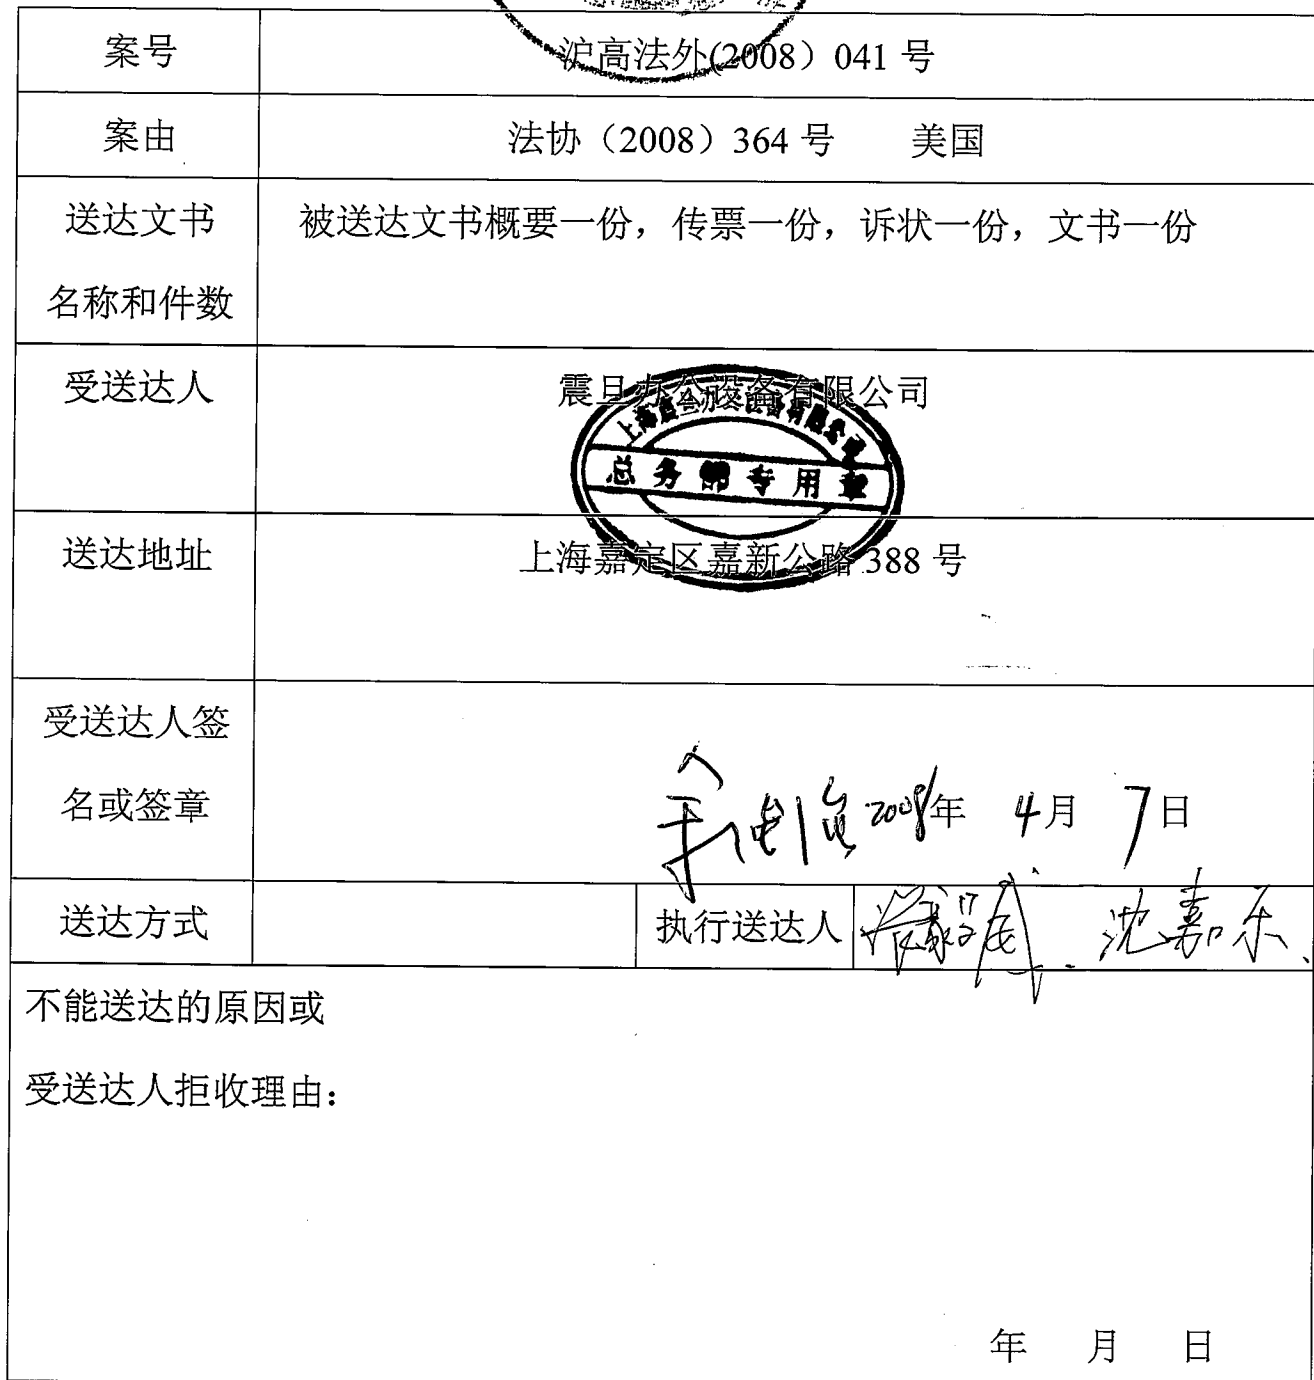 案号
沪高法外(2008）041 号
案由
法协（2008）364 号 美国
送达文书
名称和件数
被送达文书概要一份，传票一份，诉状一份，文书一份
受送达人
震旦办公设备有限公司
总务部专用章
送达地址
上海嘉定区嘉新公路 388 号
受送达人签
名或签章
2008年 4月 7日
送达方式
执行送达人
沈嘉乐
不能送达的原因或
受送达人拒收理由：
年 月 日